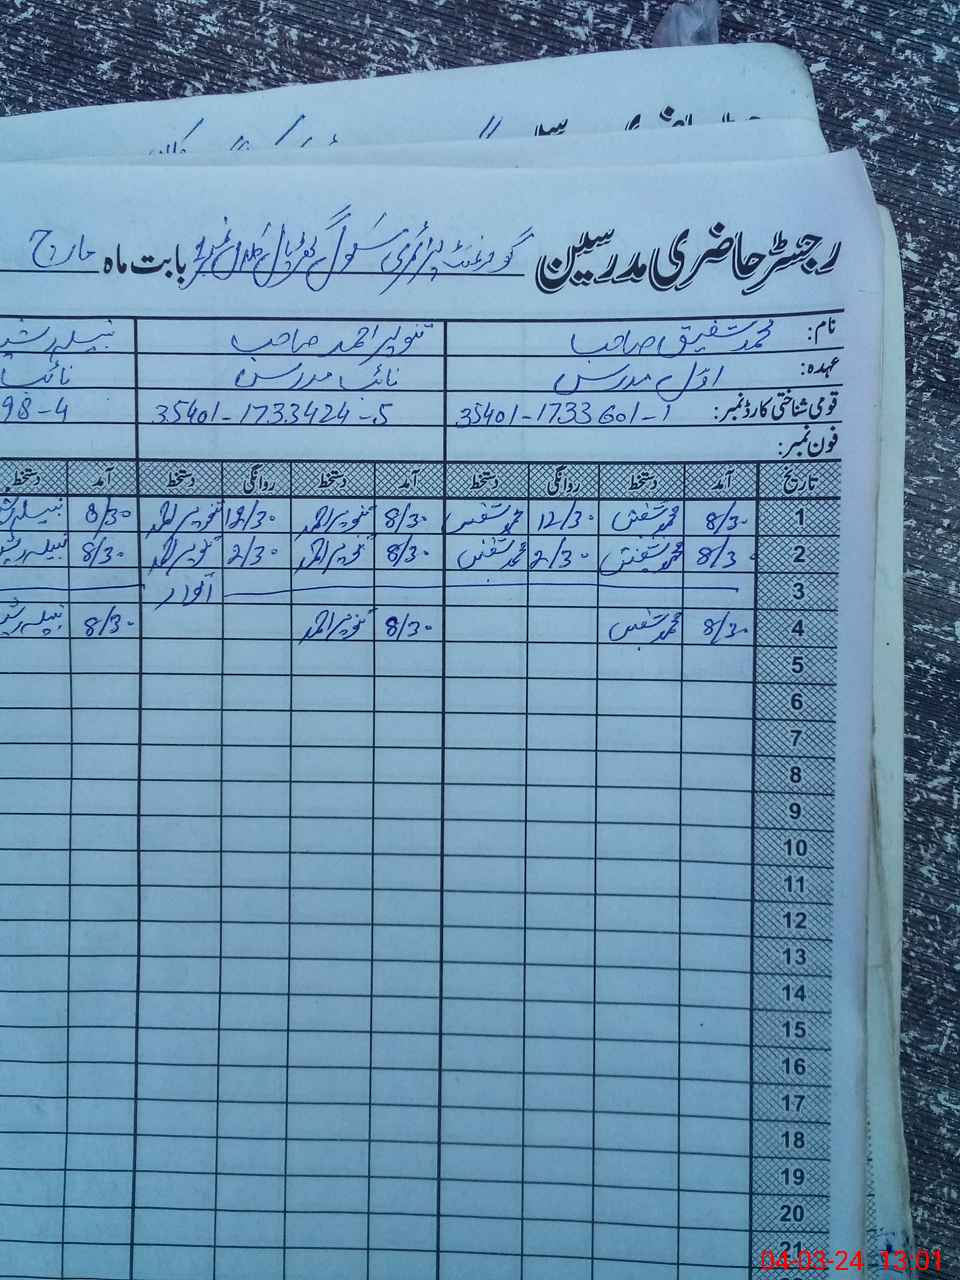 رجسٹر حاضری مدرسین گورنمنٹ پرائمری سکول بابت ماہ مارچ
نام: محمد شفیق صاحب تنویر احمد صاحب
عہدہ: اوّل مدرس نائب مدرس نائب
قومی شناختی کارڈ نمبر: 35401-1733601-1 35401-1733424-5 98-4
فون نمبر:
تاریخ آمد دستخط روانگی دستخط آمد دستخط روانگی دستخط آمد دستخط
1 8/30 محمد شفیق 12/30 محمد شفیق 8/30 تنویر احمد 12/30 تنویر احمد 8/30
2 8/30 محمد شفیق 2/30 محمد شفیق 8/30 تنویر احمد 2/30 تنویر احمد 8/30
3 اتوار
4 8/30 محمد شفیق 8/30 تنویر احمد 8/30
5
6
7
8
9
10
11
12
13
14
15
16
17
18
19
20
21
04-03-24 13:01